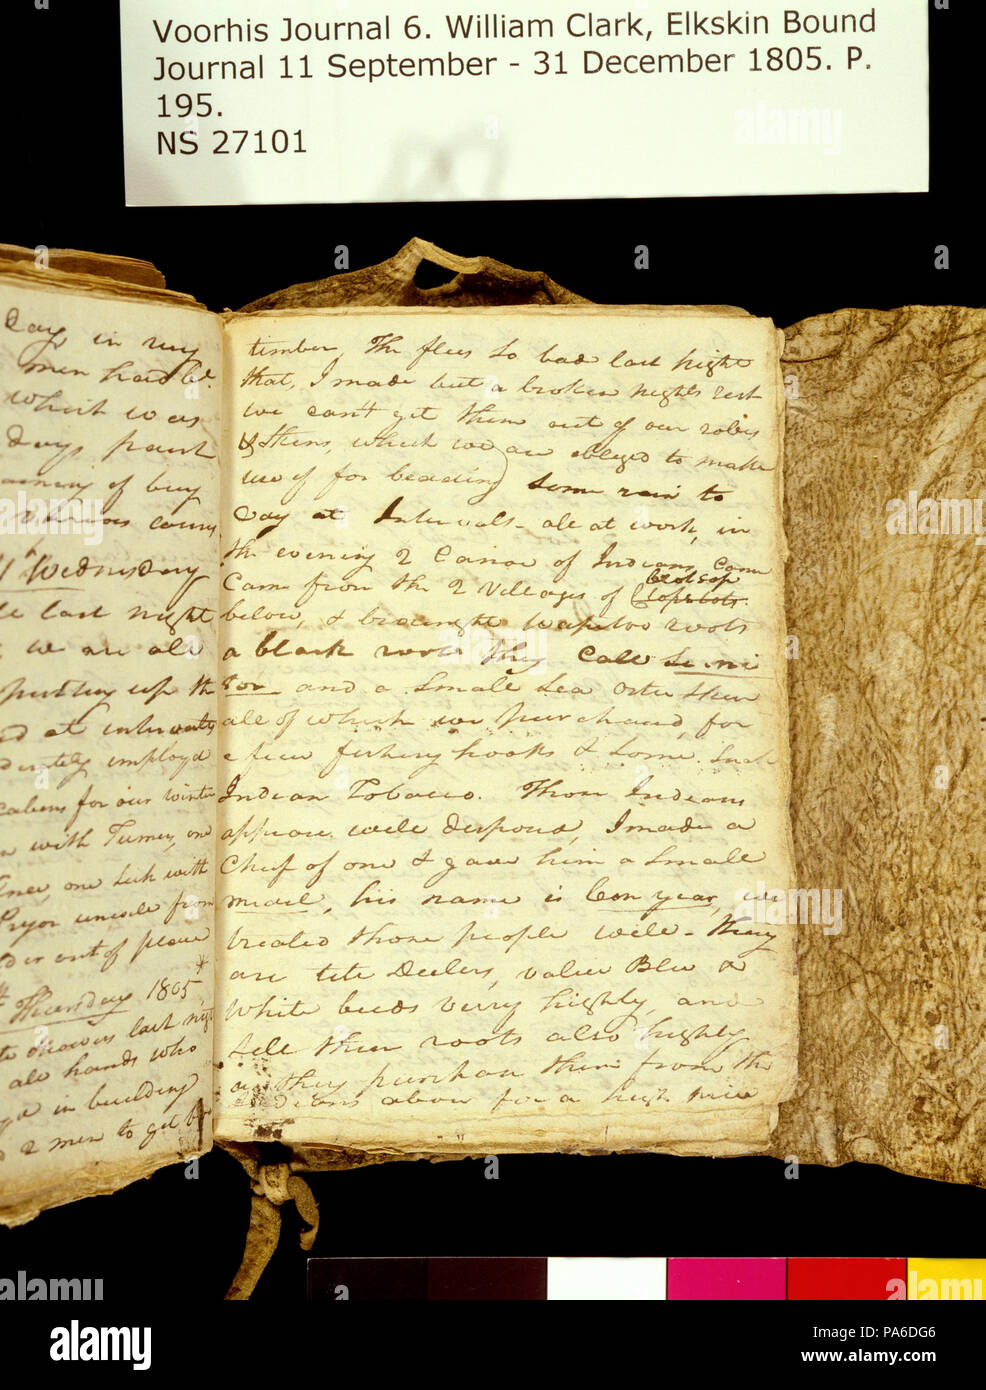 Voorhis Journal 6. William Clark, Elkskin Bound
Journal 11 September - 31 December 1805. P.
195.
NS 27101
Day in my
men have bd.
which was
days past
of buy
various cours
Wednesday
last night
we are all
putting up th
at intervals
employd
cabens for our winter
with Turner, one
one Sick with
Pryor unwell from
out of place
Thursday 1805 *
Showers last night
all hands who
in building
2 men to get b
timber, The flees So bad last night
that, I made but a broken nights rest
we can't get them out of our robes
& Skins, which we are obliged to make
use of for beading Some rain to
Day at Intervals - all at work, in
the evening 2 Canoe of Indians Came
Came from the 2 Villages of Clotsop
below, & brought Wapitoo roots
a black root they Call Si ni
tor and a Small Sea orter Skin
all of which we purchased for
a few fishing hooks & Some Snake
Indian Tobacco. Those Indians
appear well disposed, I made a
Chief of one & gave him a Small
medel, his name is Con year, we
treated those people well - they
are tite Deelers, value Blu &
White beeds verry highly, and
Sell their roots also highly
as they purchase them from the
Indians above for a high price
alamy
PA6DG6
www.alamy.com